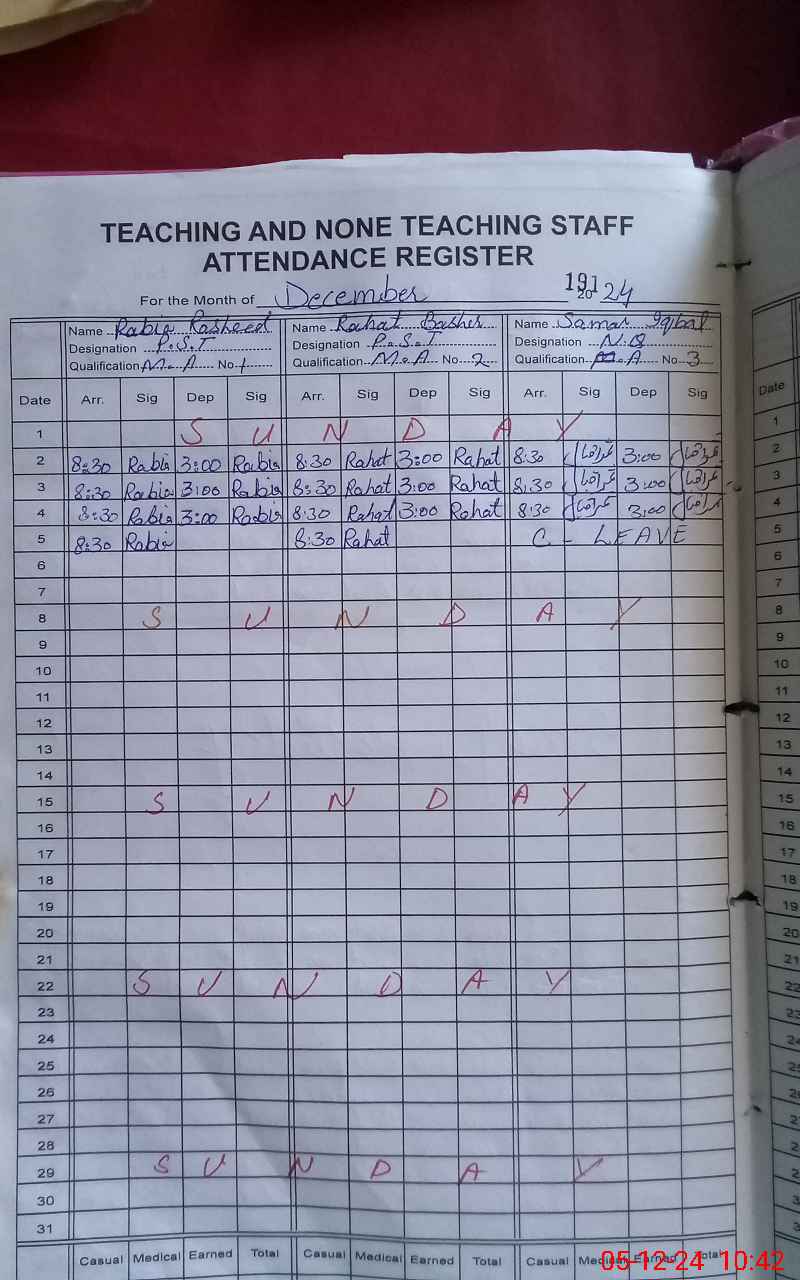 TEACHING AND NONE TEACHING STAFF
ATTENDANCE REGISTER
For the Month of December 19 20 24
Name Rabia Rasheed Name Rahat Basher Name Samar Iqbal
Designation P.S.T Designation P.S.T Designation N.Q
Qualification M.A No 1 Qualification M.A No 2 Qualification A No 3
Date Arr. Sig Dep Sig Arr. Sig Dep Sig Arr. Sig Dep Sig Date
1 S U N D A Y 1
2 8:30 Rabia 3:00 Rabia 8:30 Rahat 3:00 Rahat 8:30 3:00 2
3 8:30 Rabia 3:00 Rabia 8:30 Rahat 3:00 Rahat 8:30 3:00 3
4 8:30 Rabia 3:00 Rabia 8:30 Rahat 3:00 Rahat 8:30 3:00 4
5 8:30 Rabia 8:30 Rahat C - LEAVE 5
6 6
7 7
8 S U N D A Y 8
9 9
10 10
11 11
12 12
13 13
14 14
15 S U N D A Y 15
16 16
17 17
18 18
19 19
20 20
21 21
22 S U N D A Y 22
23
24
25
26
27
28
29 S U N D A Y
30
31
Casual Medical Earned Total Casual Medical Earned Total Casual
05-12-24 10:42